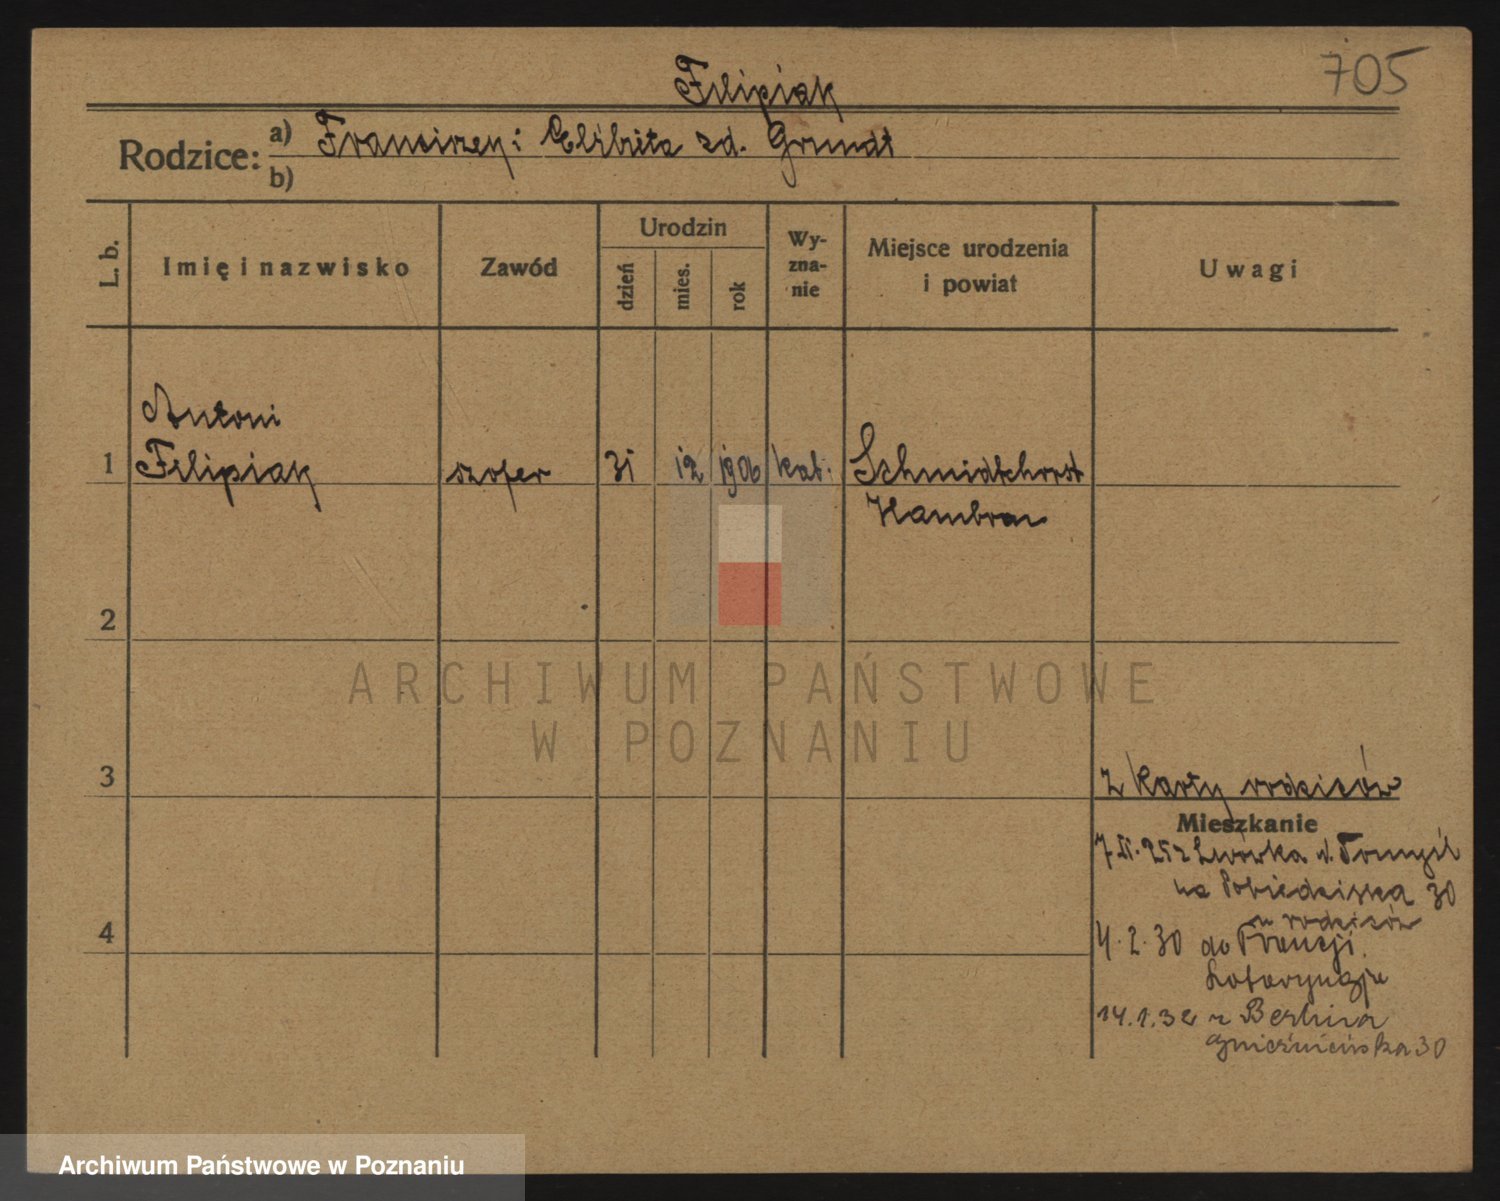 705
Filipiak
Rodzice: a) Franciszek i Elżbieta zd. Grundt
b)
L. b.
Imię i nazwisko
Zawód
Urodzin
dzień
mies.
rok
Wy-
zna-
nie
Miejsce urodzenia
i powiat
Uwagi
Antoni
1 Filipiak szofer 31 12 1906 kat. Schmidthorst
Hamborn
2
ARCHIWUM PAŃSTWOWE
W POZNANIU
3
z karty rodziców
Mieszkanie
z Lwówka
30
u rodziców
4
4.2.30 do Francji.
Lotaryngja
14.1.32 z Berlina
Gnieźnieńska 30
Archiwum Państwowe w Poznaniu